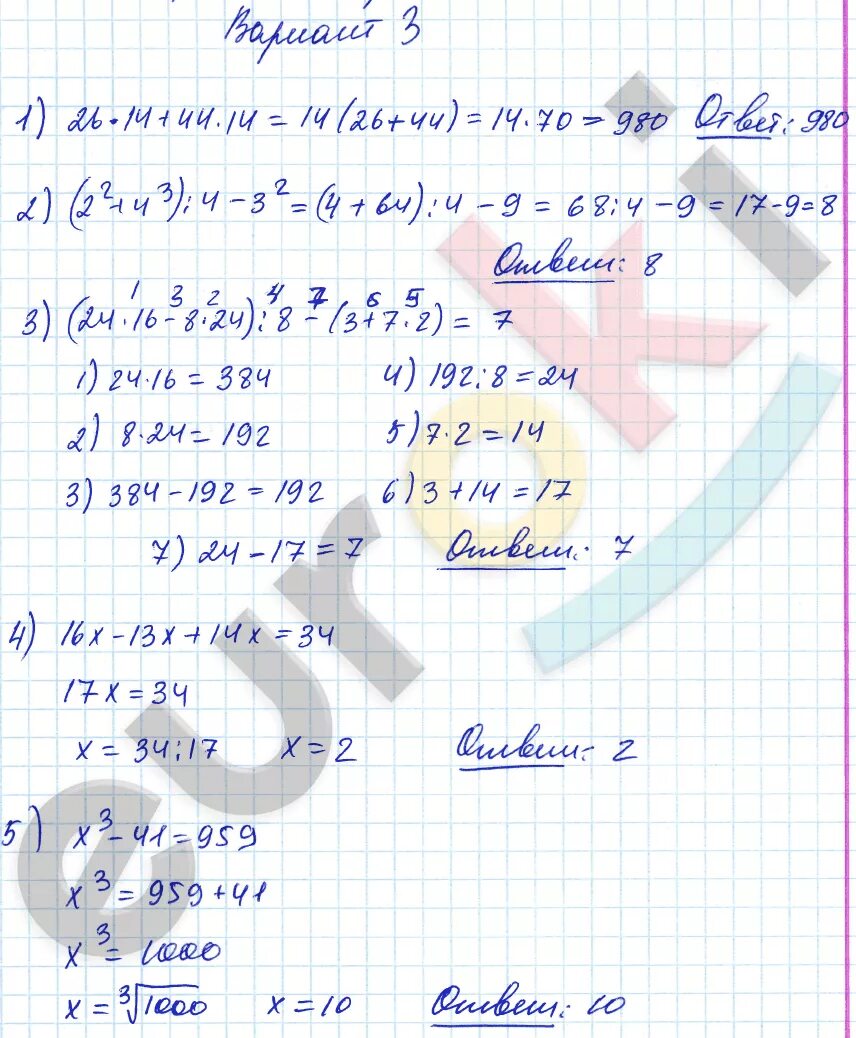 Вариант 3
1) 26·14+44·14=14(26+44)=14·70=980 Ответ: 980
2) (2²+4³):4-3²=(4+64):4-9=68:4-9=17-9=8
Ответ: 8
1 3 2 4 7 6 5
3) (24·16-8·24):8-(3+7·2)=7
1) 24·16=384 4) 192:8=24
2) 8·24=192 5) 7·2=14
3) 384-192=192 6) 3+14=17
7) 24-17=7 Ответ: 7
4) 16x-13x+14x=34
17x=34
x=34:17 x=2 Ответ: 2
5) x³-41=959
x³=959+41
x³=1000
x=³√1000 x=10 Ответ: 10
euroki